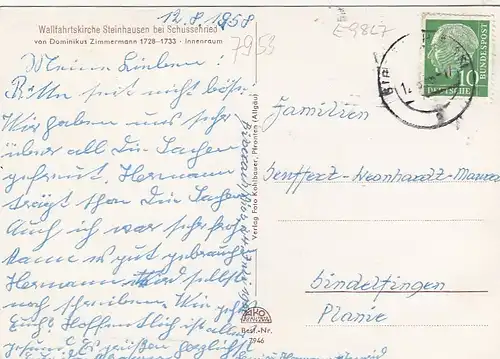 12.8.1958
Wallfahrtskirche Steinhausen bei Schussenried
von Dominikus Zimmermann 1728-1733 · Innenraum
7953
E9827
Meine Lieben!
Bitte seit nicht böse.
Wir haben uns sehr
über all die Sachen
gefreut. Hermann
trägt schon die Sachen
Auch ich war sehr froh
kann es gut gebrauchen
Hermann wird selbst
noch schreiben. Wie geht
Euch? Hoffentlich ist alles
gesund. Es grüßen herzlichst
Verlag Foto Kohlbauer, Pfronten (Allgäu)
Best.-Nr.
7946
DEUTSCHE BUNDESPOST
10
Familien
Seuffert-Leonhardt-
Sindelfingen
Planie